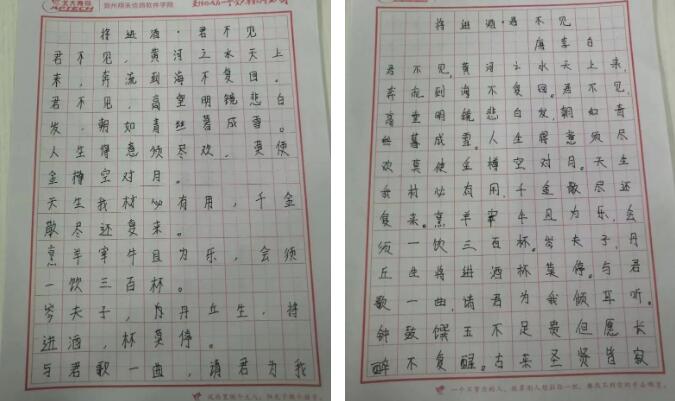 北大青鸟
APTECH 郑州翔天信鸽软件学院
将进酒·君不见
君不见,黄河之水天上
来,奔流到海不复回。
君不见,高堂明镜悲白
发,朝如青丝暮成雪。
人生得意须尽欢,莫使
金樽空对月。
天生我材必有用,千金
散尽还复来。
烹羊宰牛且为乐,会须
一饮三百杯。
岑夫子,丹丘生,将
进酒,杯莫停。
与君歌一曲,请君为我
将进酒·君不见
唐李白
君不见,黄河之水天上来,
奔流到海不复回。君不见,
高堂明镜悲白发,朝如青
丝暮成雪。人生得意须尽
欢莫使金樽空对月。天生
我材必有用,千金散尽还
复来。烹羊宰牛且为乐,会
须一饮三百杯。岑夫子,丹
丘生将进酒杯莫停。与君
歌一曲,请君为我倾耳听。
钟鼓馔玉不足贵但愿长
醉不复醒。古来圣贤皆寂